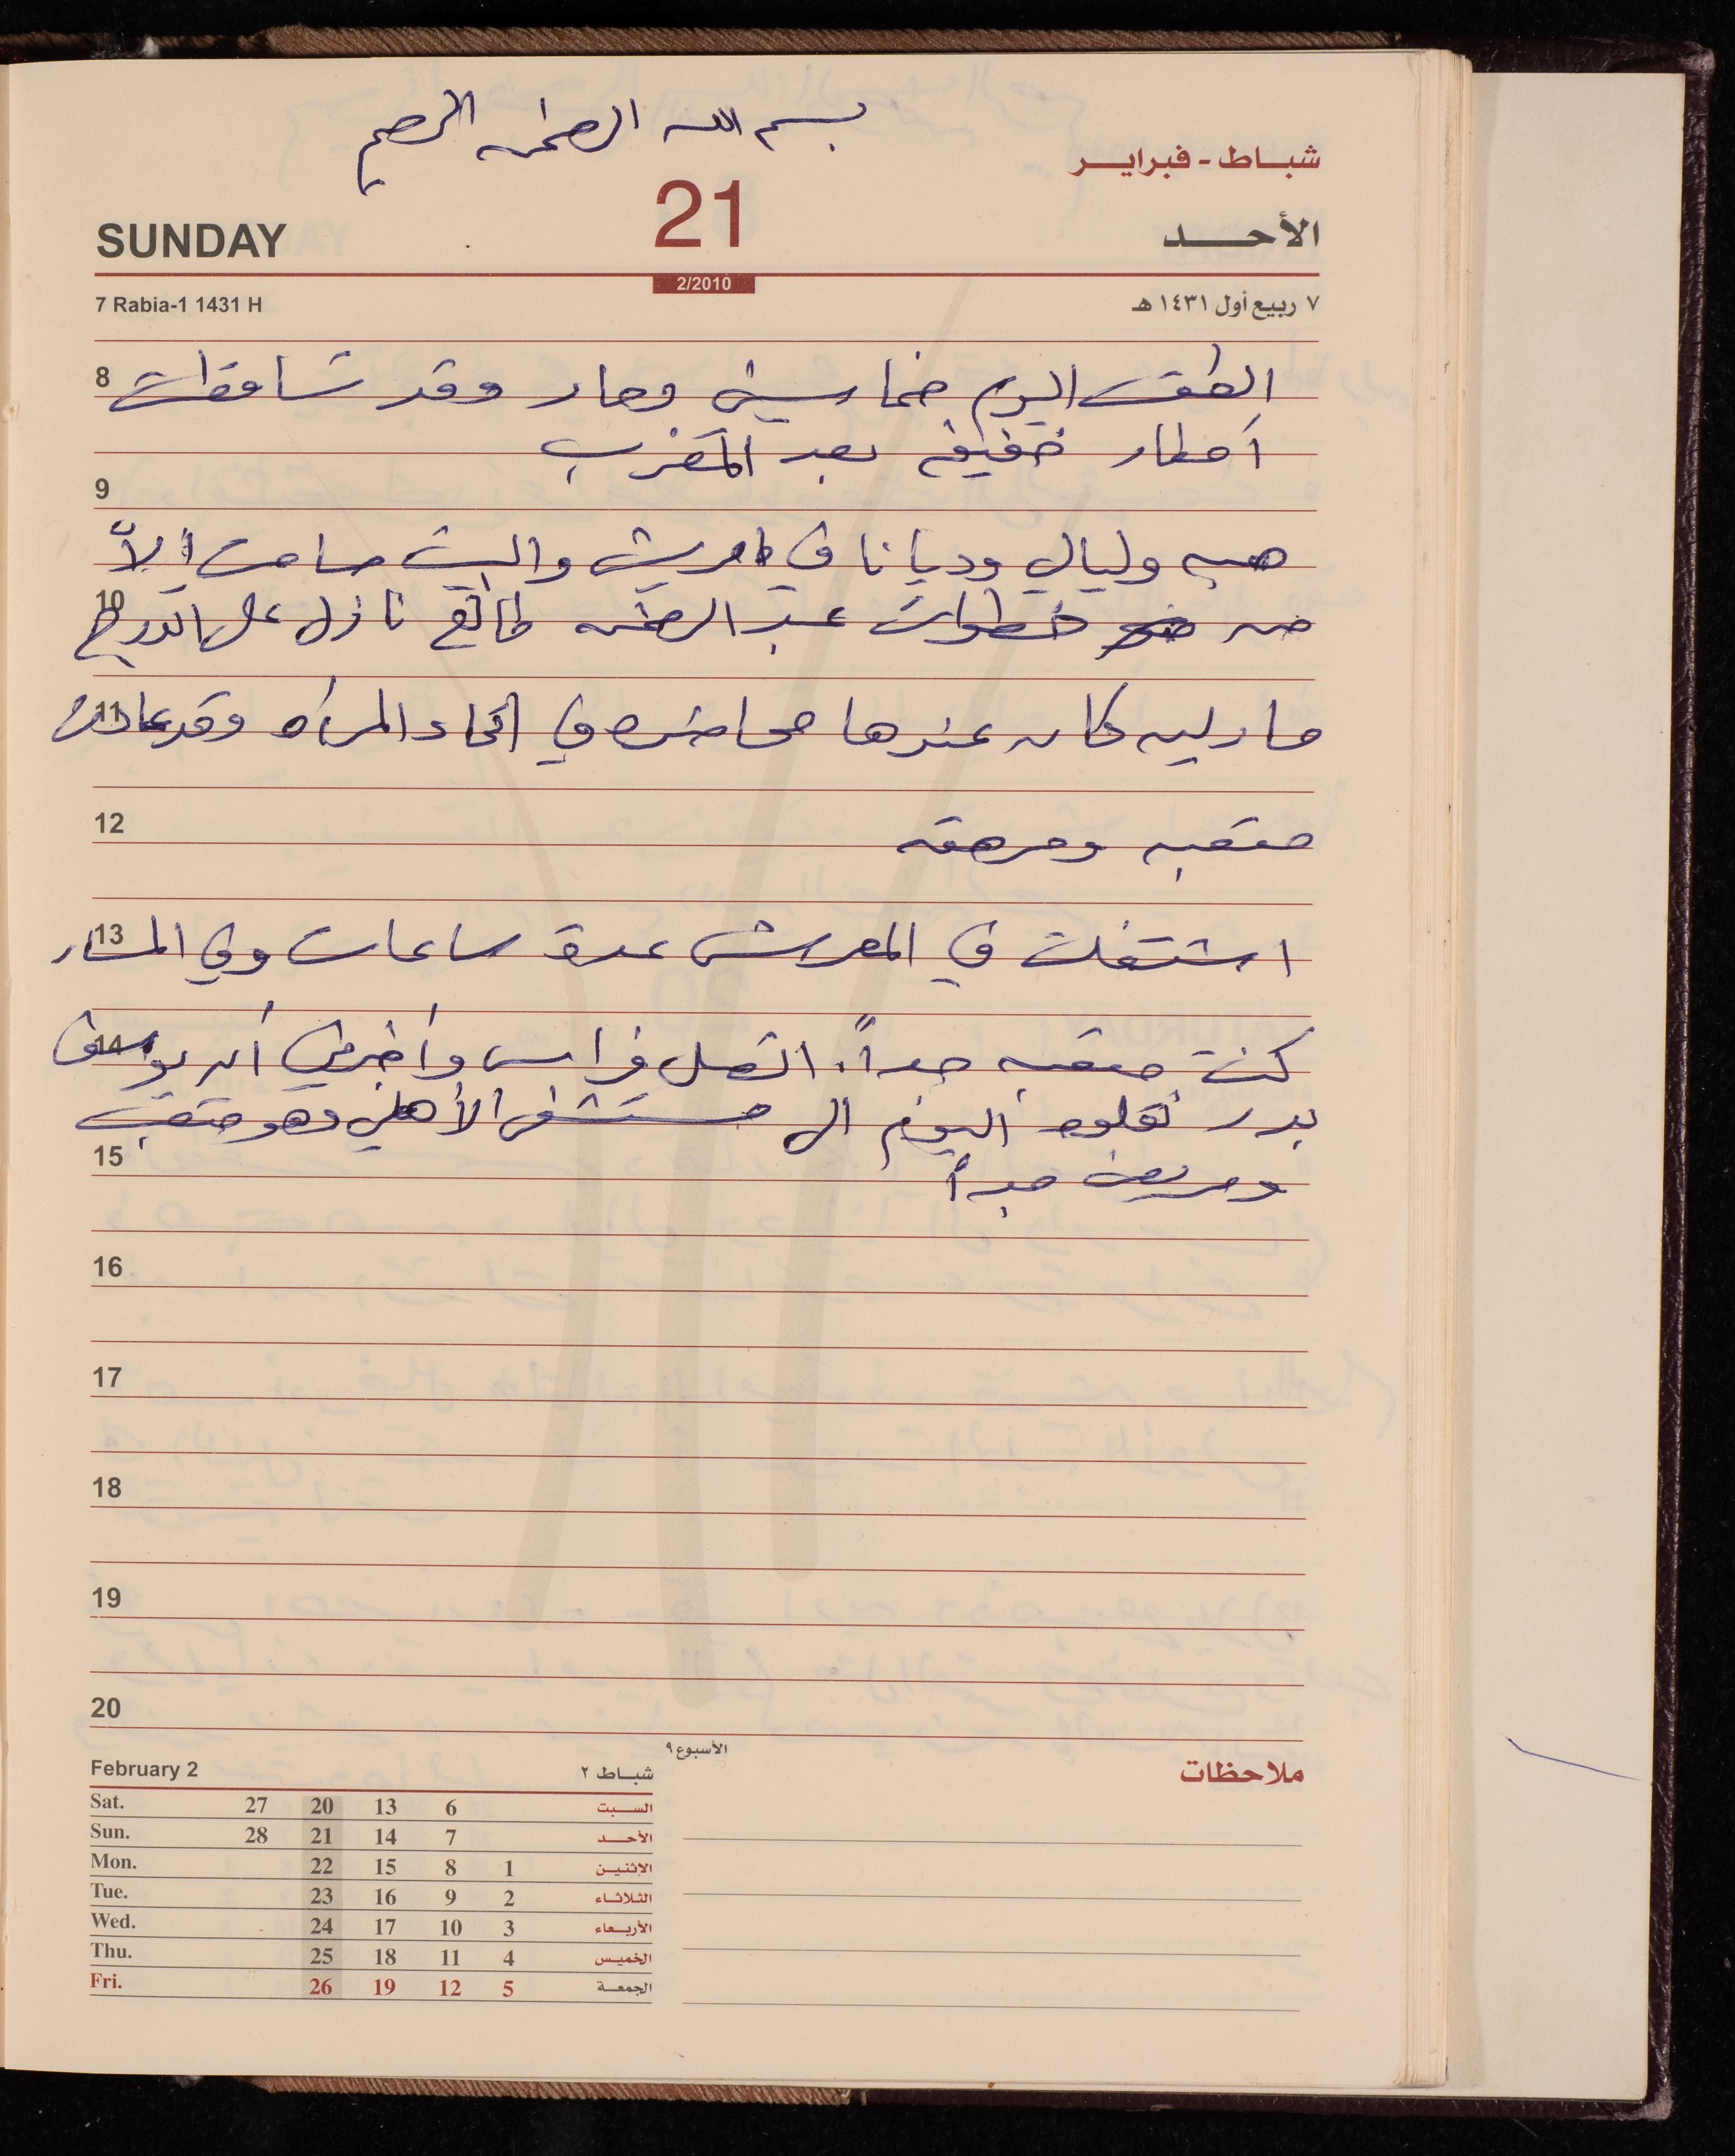 بسم الله الرحمن الرحيم
شباط - فبراير
SUNDAY 21 الأحد
2/2010
7 Rabia-1 1431 H ٧ ربيع أول ١٤٣١ هـ
8 الطقس اليوم خماسيني وحار وقد تساقطت
أمطار خفيفه بعد المغرب
9
هبه وليالي وديانا في والبيت صامت إلاّ
10 من خطوات عبد الرحمن طالع نازل على الدرج
11 ماريه كان عندها محاضره في اتحاد المرأه وقد عادت
12 متعبه ومرهقه
13 اشتغلت في المعرش عدة ساعات وفي المساء
14 كنت متعبه جداً. اتصل فراس وأخبرني أن يوسف
بدر نقلوه اليوم الى مستشفى الأهلي وهو متعب
15 ومريض جداً
16
17
18
19
20
الأسبوع ٩
ملاحظات
February 2 شباط ٢
Sat. 27 20 13 6 السبت
Sun. 28 21 14 7 الأحد
Mon. 22 15 8 1 الاثنين
Tue. 23 16 9 2 الثلاثاء
Wed. 24 17 10 3 الأربعاء
Thu. 25 18 11 4 الخميس
Fri. 26 19 12 5 الجمعة